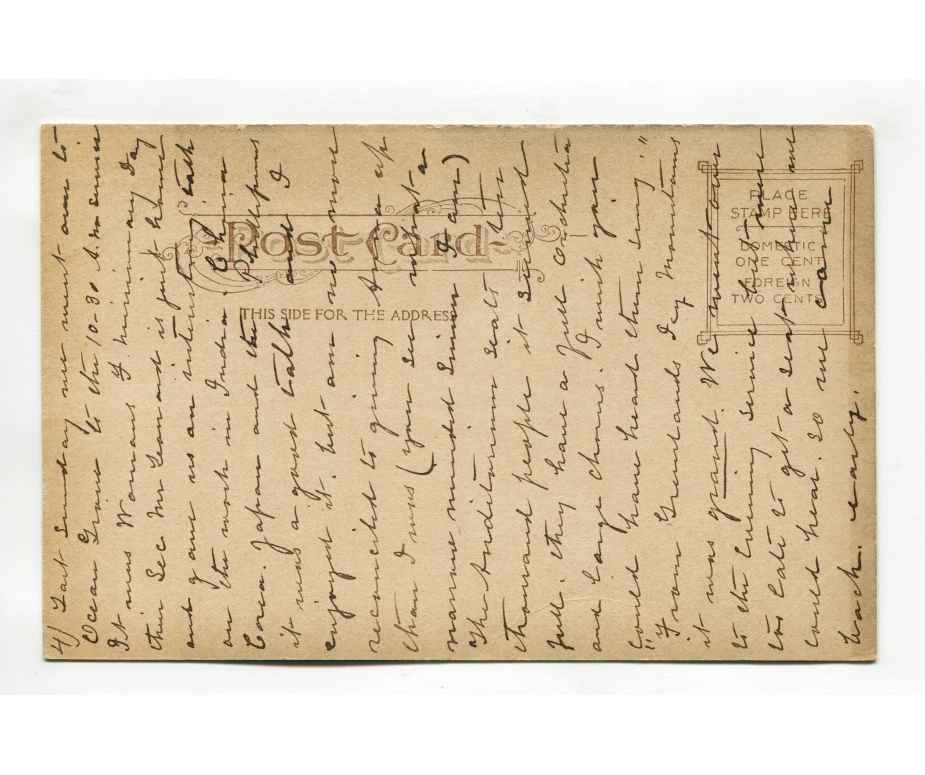 4) Last Sunday we went over to
Ocean Grove to the 10-30 A.M. service
It was Womans F. Missionary Day
their Sec Mr Leonard is just home
and gave us an interesting talk
on the work in India. China
Corea. Japan and the Phillipines
it was a good talk and I
enjoyed it. but am no more
reconciled to giving up
than I was (you see what a
narrow minded sinner I am)
The Auditorium seats ten
thousand people it
full. they have a full orchestra
and large chorus. I wish you
could have heard them sing
"From Greenlands Icy Mountains"
it was grand. We went over
to the Evening service but were
too late to get a seat where we
could hear. so we came
back early.
Post Card
THIS SIDE FOR THE ADDRESS
PLACE
STAMP HERE
DOMESTIC
ONE CENT
FOREIGN
TWO CENTS